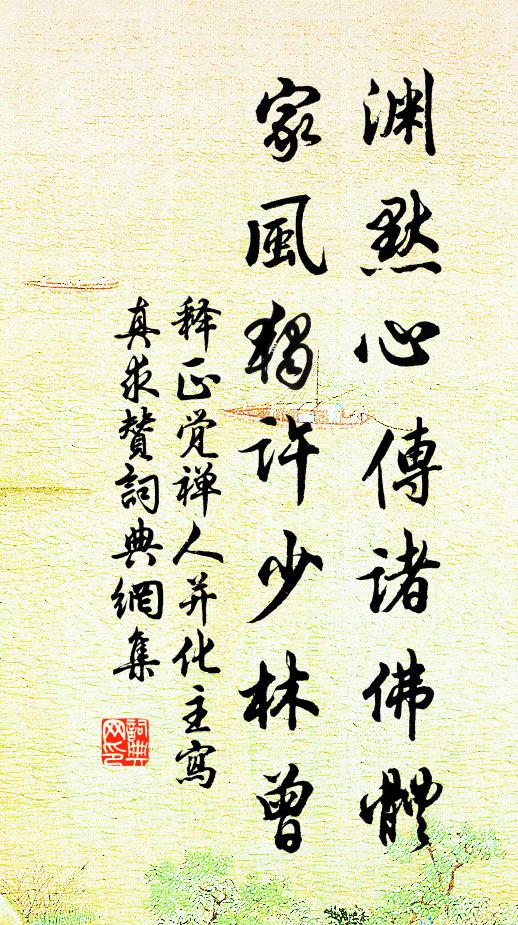 淵默心傳諸佛體
家風獨許少林曾
释正觉禅人并化主寫
真求贊詞典網集
詞典网印